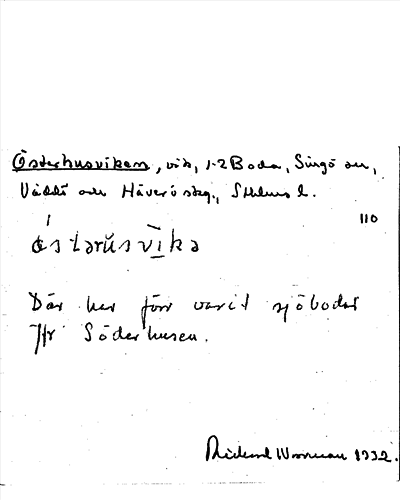 Österhusviken, vik, 1-2 Boda, Singö sn,
Väddö och Häverö skg., Sthlms l.
110
östarŭsvīka
Där har förr varit sjöbodar
Jfr Söderhusen.
Rickard Wornman 1932.